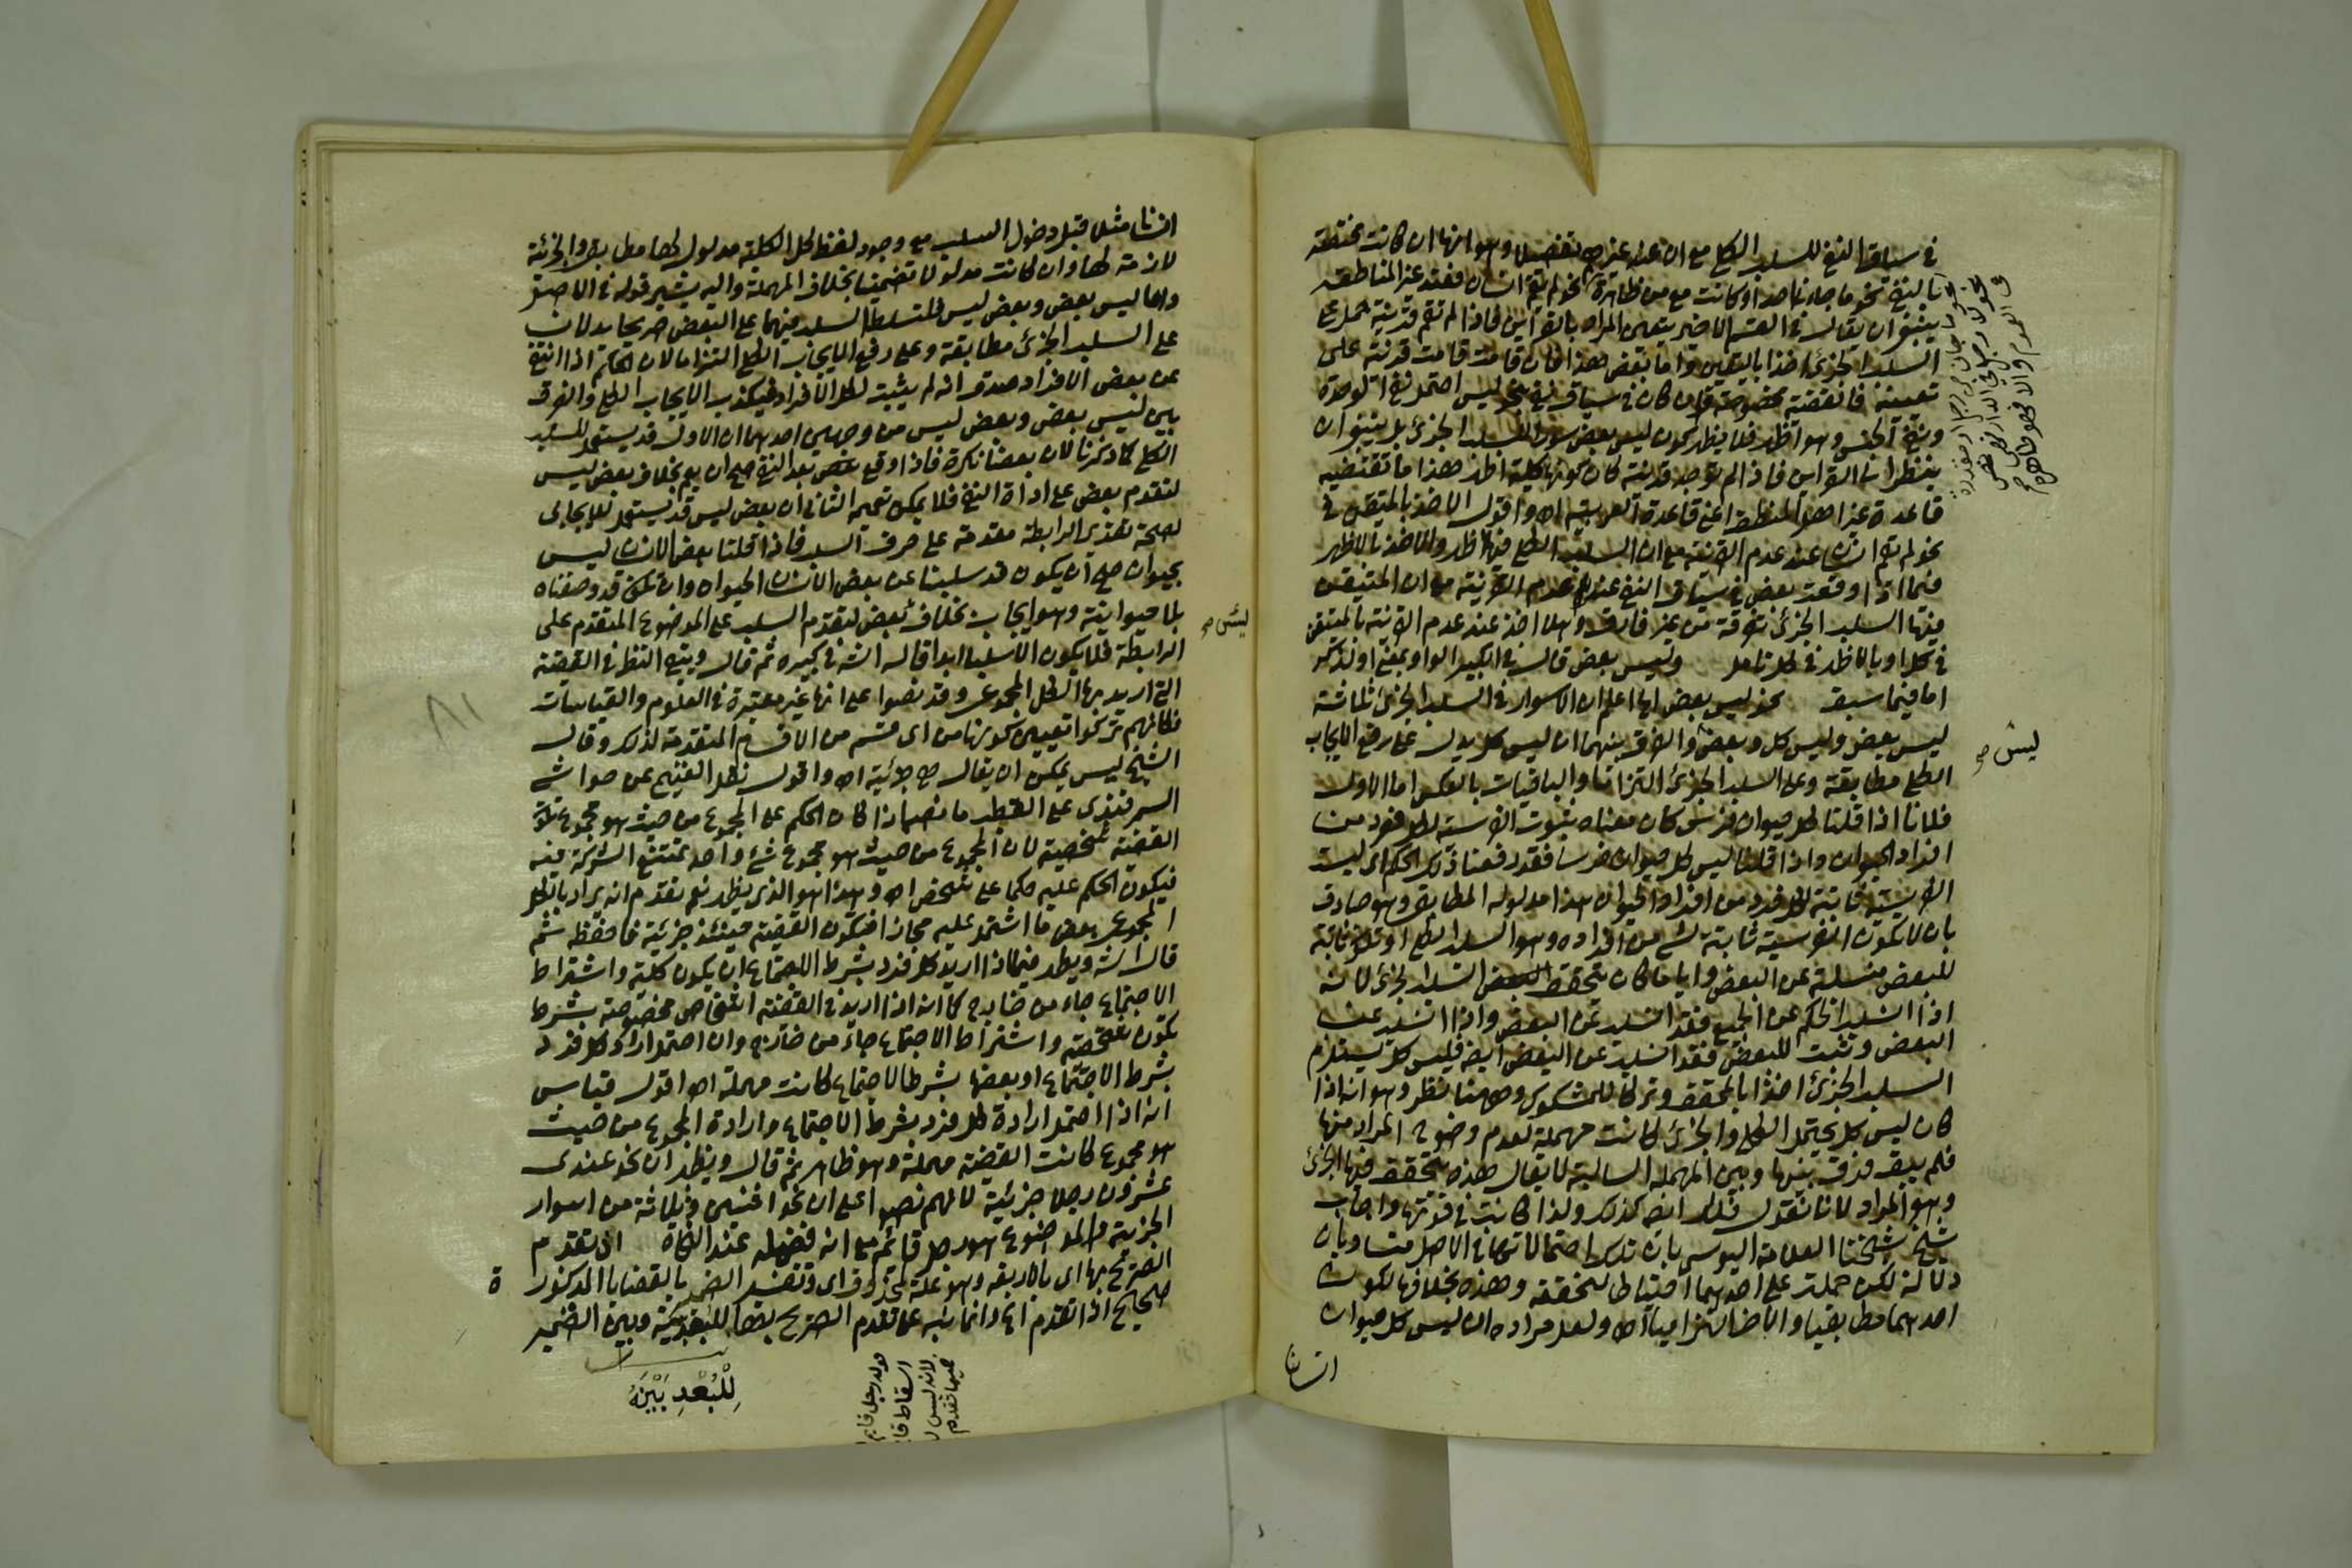 في سياق النفي للسلب الكلي مع ان عده عندهم تفصيلا وهو انها ان كانت مختصة
بالنفي نحو ما جاءنا احد او كانت مع من ظاهرة نحو لم يقم انسان فعند المناطقة
ينبغي ان يقال في القسم الاخير يتعين المراد بالقرائن فاذا لم تقم قرينة حمل على
السلب الجزئي اخذا بالمتيقن واما بعض هذا فان قامت قرينة على
تعيينه فالقضية مخصوصة وان كان في سياق نفي نحو ليس احتمل نفي الوحدة
ونفي الجنس وهو اظهر فلا يظهر كون ليس بعض سورا للسلب الجزئي بل ينبغي ان
ينظر الى القرائن فاذا لم توجد قرينة كان كونها كلية اظهر هذا ما تقتضيه
قاعدة غير اهل المنطق اعني قاعدة العربية اه واقول الاخذ بالمتيقن في
نحو لم يقم انسان عند عدم القرينة مع ان السلب الكلي فيها اظهر والاخذ بالاظهر
فيما اذا وقعت بعض في سياق النفي عند عدم القرينة مع ان المتيقن
فيها السلب الجزئي تفرقة من غير فارق وهلا اخذ عند عدم القرينة بالمتيقن
في كل او بالاظهر في كل تامل وليس بعض قال في الكبير الواو بمعنى او لذكر
اما فيما سبق نحو ليس بعض الخ اعلم ان الاسوار في السلب الجزئي ثلاثة
ليس بعض وليس كل وبعض والفرق بينهما ان ليس كل يدل على رفع الايجاب
الكلي مطابقة وعلى السلب الجزئي التزاما والباقيات بالعكس اما الاول
فلانا اذا قلنا كل حيوان فرس كان معناه ثبوت الفرسية لكل فرد من
افراد الحيوان واذا قلنا ليس كل حيوان فرسا فقد رفعنا ذلك الحكم اي ليست
الفرسية ثابتة لكل فرد من افراد الحيوان هذا مدلوله المطابقي وهو صادق
بان لا تكون الفرسية ثابتة لشيء من افراده وهو السلب الكلي او تكون ثابتة
للبعض منسلبة عن البعض وايا ما كان يتحقق السلب الجزئي لانه
اذا انسلب الحكم عن الجميع فقد انسلب عن البعض واذا انسلب عن
البعض وثبت للبعض فقد انسلب عن البعض ايضا فليس كل يستلزم
السلب الجزئي اخذا بالمحقق وتركا للمشكوك وههنا نظر وهو انه اذا
كان ليس كل يحتمل الكلي والجزئي كانت مهملة لعدم وضوح المراد منها
فلم يبق فرق بينها وبين المهملة السالبة لا يقال هذه يتحقق فيها الجزئي
وهو المراد لانا نقول تلك ايضا كذلك ولذا كانت في قوتها واجاب
شيخ شيخنا العلامة اليوسي بان تلك احتمالاتها في الاصل متساويان
دلالة لكن حملت على احدهما احتياطا لتحققه وهذه بخلافها لكون
احدهما مطابقيا والاخر التزاميا اه ولعل مراده ان ليس كل حيوان
انسانا
ليس صح
انسانا مثلا قبل دخول السلب مع وجود لفظ كل الكلية مدلول لها مطابقة والجزئية
لازمة لها وان كانت مدلولا تضمنيا بخلاف المهملة واليه يشير قوله في الاصل
واما ليس بعض وبعض ليس فلتسلط السلب فيهما على البعض صريحا يدلان
على السلب الجزئي مطابقة وعلى رفع الايجاب الكلي التزاما لان الحكم اذا انتفى
عن بعض الافراد صدق انه لم يثبت لكل الافراد فيكذب الايجاب الكلي والفرق
بين ليس بعض وبعض ليس من وجهين احدهما ان الاول قد يستعمل للسلب
الكلي كما ذكرنا لان بعضا نكرة فاذا وقع بعد النفي صح ان يعم بخلاف بعض ليس
لتقدم بعض على اداة النفي فلا يمكن تعميمه الثاني ان بعض ليس قد يستعمل للايجاب
لصحة تقدير الرابطة مقدمة على حرف السلب فاذا قلنا بعض الانسان ليس
بحيوان صح ان يكون قد سلبنا عن بعض الانسان الحيوان وان نكون قد وصفناه
بلا حيوانية وهو ايجاب بخلاف بعض لتقدم السلب على الموضوع المتقدم على
الرابطة فلا يكون الا سلبا ابدا قاله الشه في كبيره ثم قال وبقي النظر في القضية
التي اريد بها الكل المجموعي وقد نصوا على انها غير معتبرة في العلوم والقياسات
فكانهم تركوا تعيين كونها من اي قسم من الاقسام المتقدمة لذلك وقال
الشيخ يس يمكن ان يقال هي جزئية اه واقول نقل الفتيح عن حواشي
السمرقندي على القطب ما نصه اذا كان الحكم على المجموع من حيث هو مجموع تكون
القضية شخصية لان المجموع من حيث هو مجموع شيء واحد يمتنع الشركة فيه
فيكون الحكم عليه حكما على شخص اه وهذا هو الذي يظهر نعم تقدم انه يراد بالكل
المجموعي بعض ما اشتمل عليه مجازا فتكون القضية حينئذ جزئية فاحفظه ثم
قال الشه ويظهر فيما اذا اريد كل فرد بشرط الاجتماع ان يكون كلية واشتراط
الاجتماع جاء من خارج كما انه اذا اريد في القضية اشخاص مخصوصة بشرط
تكون شخصية واشتراط الاجتماع جاء من خارج وان احتمل ارادة كل فرد
بشرط الاجتماع او بعضها بشرط الاجتماع كانت مهملة اه اقول قياس
انه اذا احتمل ارادة كل فرد بشرط الاجتماع وارادة المجموع من حيث
هو مجموع كانت القضية مهملة وهو ظاهر ثم قال ويظهر ان نحو عندي
عشرون رجلا جزئية لانهم نصوا على ان نحو اثنين وثلاثة من اسوار
الجزئية والموضوع هو رجل قائم مع انه فضلة عند النحاة اذ تقدم
التصريح بها اي بالاربعة وهو علة لمحذوف اي وتفسير الضمير بالقضايا المذكورة
صحيح اذ تقدم الخ وانما نبه على تقدم التصريح بها للبعد بينه وبين الضمير
ليس صح
٨١
لِلْبُعْدِ بَيْنَهُ
قوله رجل قائم
اسقاط قا
لانه ليس
فيما تقدم